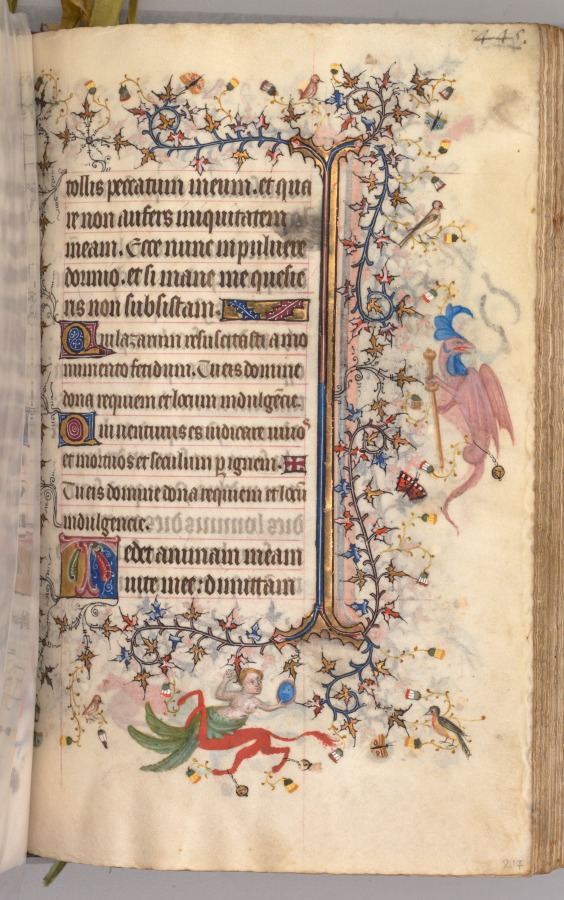 445.
tollis peccatum meum. et qua
re non aufers iniquitatem
meam. Ecce nunc in puluere
dormio. et si mane me quesie
ris non subsistam.
Qui lazarum resuscitasti a mo
numento fetidum. Tu eis domine
dona requiem et locum indulgencie.
Qui uenturus es iudicare uiuos
et mortuos et seculum per ignem.
Tu eis domine dona requiem et locum
indulgencie.
Tedet animam meam
uite mee: dimittam
217